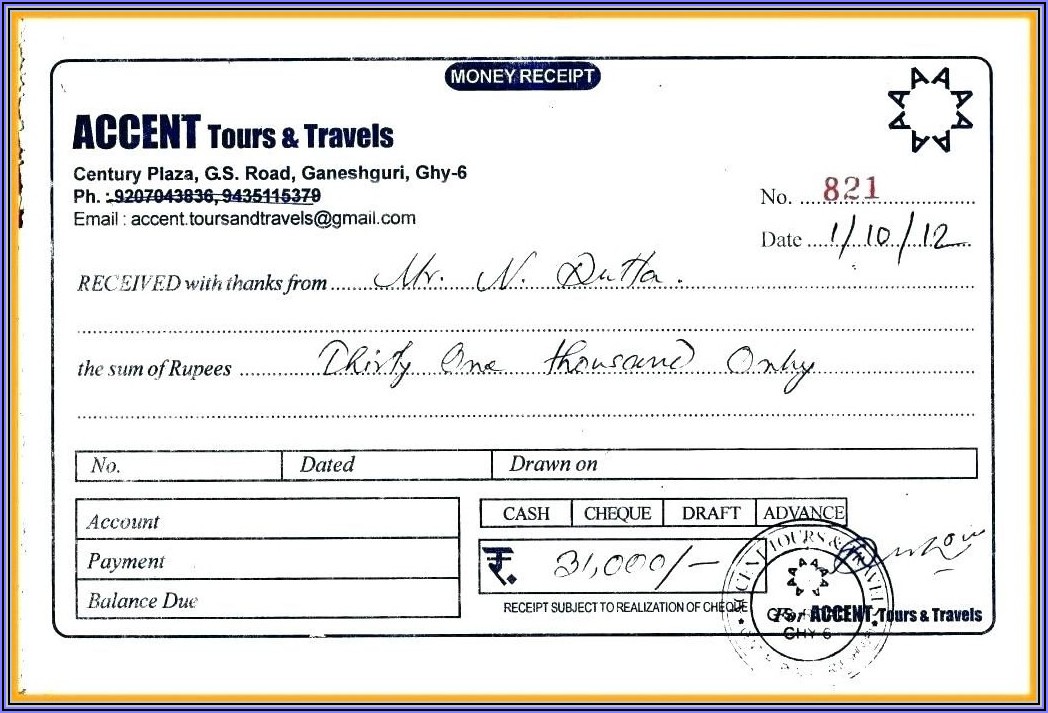 MONEY RECEIPT
ACCENT Tours & Travels
Century Plaza, G.S. Road, Ganeshguri, Ghy-6
Ph. : 9207043836, 9435115379
Email : accent.toursandtravels@gmail.com
No. 821
Date 1/10/12
RECEIVED with thanks from Mr. N. Dutta.
the sum of Rupees Thirty One thousand Only
No. Dated Drawn on
Account
Payment
Balance Due
CASH CHEQUE DRAFT ADVANCE
₹. 31,000/-
RECEIPT SUBJECT TO REALIZATION OF CHEQUE
For ACCENT Tours & Travels
TOURS &
GHY-6